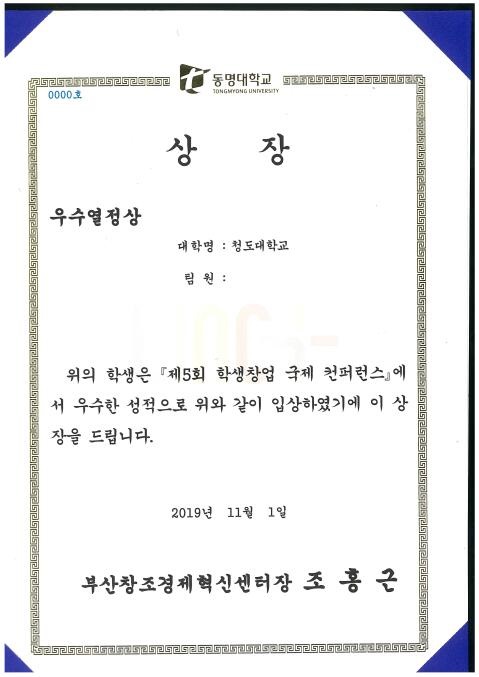 동명대학교
TONGMYONG UNIVERSITY
0000호
상 장
우수열정상
대학명 : 청도대학교
팀 원 :
위의 학생은 『제5회 학생창업 국제 컨퍼런스』에
서 우수한 성적으로 위와 같이 입상하였기에 이 상
장을 드립니다.
2019년 11월 1일
부산창조경제혁신센터장 조 홍 근